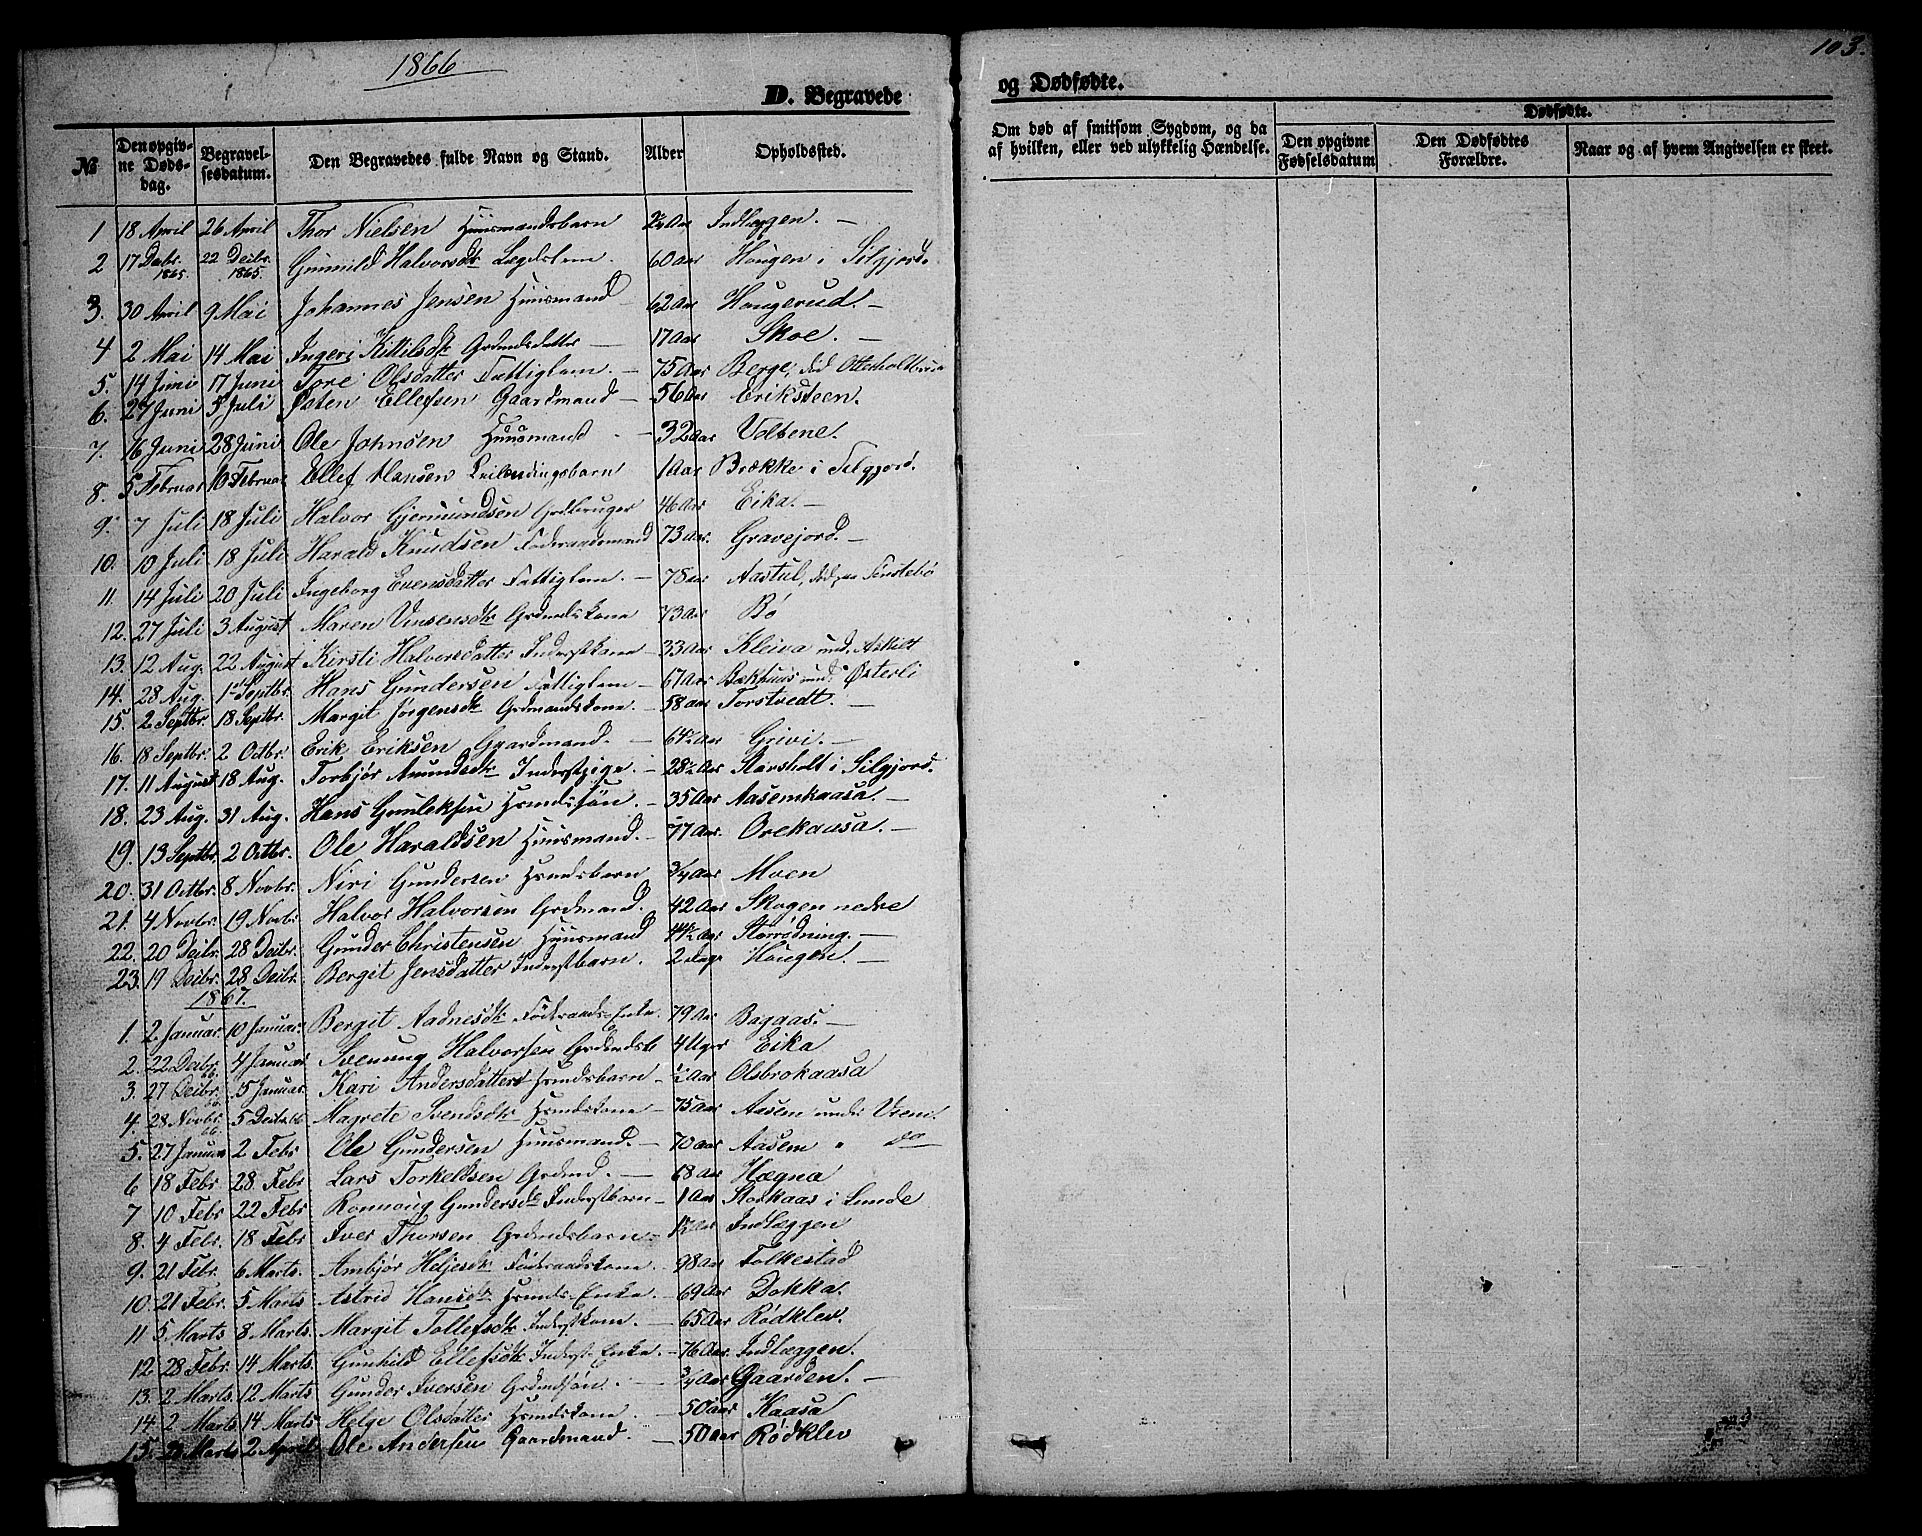 1866
103.
D. Begravede
og Dødfødte.
№ Den opgivne Dødsdag. Begravelsesdatum. Den Begravedes fulde Navn og Stand. Alder Opholdssted.
Om død af smitsom Sygdom, og da af hvilken, eller ved ulykkelig Hændelse. Dødfødte. Den opgivne Fødselsdatum Den Dødfødtes Forældre. Naar og af hvem Angivelsen er skeet.
1 18 April 26 April Thor Nielsen Huusmandsbarn Aar Indlæggen. —
2 17 Decbr. 1865. 22 Decbr. 1865. Gunnild Halvorsdtr Lægdslem. 60 Aar Haugen i Silgjord.
3. 30 April 9 Mai Johannes Jensen Huusmand 62 Aar Haugerud. —
4 2 Mai 14 Mai Ingeri Kittilsdtr Grdmdsdatter — 17 Aar Skoe. —
5. 14 Juni 17 Juni Tore Olsdatter Fattiglem. — 75 Aar Berge, død
6. 27 Juni 5 Juli Østen Ellefsen Gaardmand — 56 Aar Eriksteen.
7. 16 Juni 28 Juni Ole Johnsen Huusmand — 32 Aar
8. 5 Februar 10 Februar Ellef Hansen Leilændingsbarn 1 Aar Brække i Silgjord.
9. 7 Juli 18 Juli Halvor Gjermundsen Grdbruger 46 Aar Eika. —
10. 10 Juli 18 Juli Harald Knudsen Føderaadsmand 73 Aar. Gravejord. —
11. 14 Juli 20 Juli Ingeborg Evensdatter Fattiglem. — 78 Aar Aastul, død paa Fenstebø
12. 27 Juli 3 August Maren Vinsensdtr Grdmdskone 73 Aar Bø
13. 12 Aug. 22 August Kirsti Halvorsdatter Inderstkone — 33 Aar Kleiva und. Askilt
14. 28 Aug. 1ste Septbr. Hans Gundersen Fattiglem — 67 Aar Bækhuus und. Østerli
15. 2 Septbr. 18 Septbr. Margit Jørgensdtr Grdmandskone. — 58 Aar Torstvedt. —
16. 18 Septbr. 2 Octbr. Erik Eriksen Gaardmand. — 64½ Aar Grivi. —
17. 11 August 18 Aug. Torbjør Amundsdtr Inderstpige. — 28½ Aar Stavsholt i Silgjord.
18. 23 Aug. 31 Aug. Hans Gunleksen Hsmdssøn. — 35 Aar Aasemkaasa. —
19. 13 Septbr. 2 Octbr. Ole Haraldsen Huusmand. — 77 Aar. Orekaasa. —
20. 31 Octbr. 8 Novbr. Niri Gundersen Hsmdsbarn ¾ Aar Moen
21. 4 Novbr. 19 Novbr Halvor Halvorsen Grdmand. 42 Aar Skogen nedre
22. 20 Decbr. 28 Decbr. Gunder Christensen Huusmand 44½ Aar Storrødning. —
23. 19 Decbr. 28 Decbr. Bergit Jensdatter Inderstbarn. 2 Dage Haugen. —
1867.
1. 2 Januar. 10 Januar. Bergit Aadnesdtr Føderaads-Enke. 79 Aar Bagaas. —
2. 22 Decbr. 66. 4 Januar Svenung Halvorsen Grdmdsb 4 Uger Eika
3. 27 Decbr. 66 5 Januar. Kari Andersdatter Hsmdsbarn — ½ Aar Olsbrokaasa
4. 28 Novbr. 66. 5 Decbr. 66 Magrete Svendsdtr Hsmdskone — 75 Aar Aasem under Vreim.
5. 27 Januar 2 Febr Ole Gundersen Huusmand. — 70 Aar Aasem " do
6 18 Febr. 28 Febr Lars Torkeldsen Grdmd. — 68 Aar Hægna
7 10 Febr 22 Febr Ronnoug Gundersdtr Inderstbarn — 1 Aar Storkaas i Lunde
8. 4 Febr. 18 Febr Iver Thorsen Grdmdsbarn — 1½ Aar Indlæggen
9. 21 Febr. 6 Marts. Ambjør Heljesdtr Føderaadskone. — 98 Aar Folkestad
10. 21 Febr. 5 Marts Astrid Hansdtr Hsmds-Enke. — 69 Aar Dokka.
11 5 Marts 8 Marts. Margit Tollefsdtr Inderstkone. — 65 Aar Rødklev.
12 28 Febr. 14 Marts. Gunhild Ellefsdtr Inderst-Enke. — 76 Aar. Indlæggen.
13. 2 Marts. 12 Marts Gunder Iversen Grdmdsøn. — ¾ Aar Gaarden. —
14. 2 Marts 14 Marts Helge Olsdatter Hsmdskone. — 50 Aar Kaasa
15. Marts 2 April Ole Andersen Gaardmand. — 50 Aar Rødklev